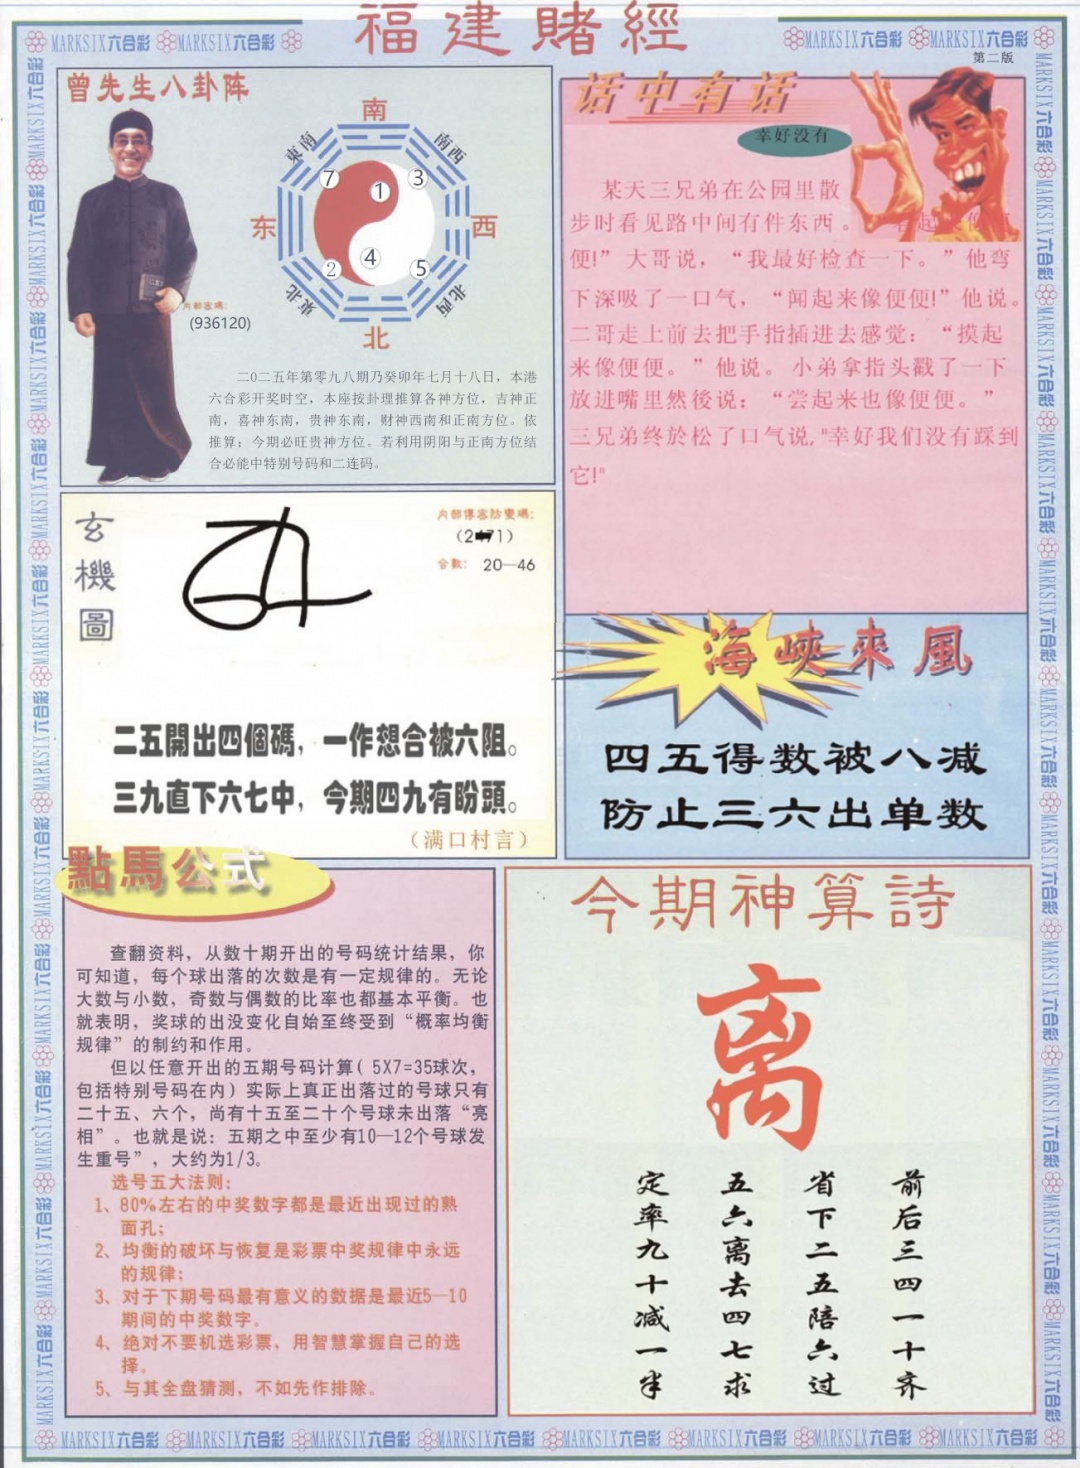 福建賭經
MARKSIX六合彩 MARKSIX六合彩
MARKSIX六合彩 MARKSIX六合彩
第二版
曾先生八卦阵
南
東南
南西
7
1
3
东
西
2
4
5
東北
北西
北
内部密碼:
(936120)
二0二五年第零九八期乃癸卯年七月十八日，本港
六合彩开奖时空，本座按卦理推算各神方位，吉神正
南，喜神东南，贵神东南，财神西南和正南方位。依
推算：今期必旺贵神方位。若利用阴阳与正南方位结
合必能中特别号码和二连码。
话中有话
幸好没有
某天三兄弟在公园里散
步时看见路中间有件东西。
便!”大哥说，“我最好检查一下。”他弯
下深吸了一口气，“闻起来像便便!”他说。
二哥走上前去把手指插进去感觉：“摸起
来像便便。”他说。小弟拿指头戳了一下
放进嘴里然後说：“尝起来也像便便。”
三兄弟终於松了口气说,"幸好我们没有踩到
它!"
玄機圖
内部傳密防變碼:
合數: 20—46
二五開出四個碼，一作想合被六阻。
三九直下六七中，今期四九有盼頭。
（满口村言）
海峽來風
四五得数被八减
防止三六出单数
點馬公式
查翻资料，从数十期开出的号码统计结果，你
可知道，每个球出落的次数是有一定规律的。无论
大数与小数，奇数与偶数的比率也都基本平衡。也
就表明，奖球的出没变化自始至终受到“概率均衡
规律”的制约和作用。
但以任意开出的五期号码计算( 5X7=35球次，
包括特别号码在内）实际上真正出落过的号球只有
二十五、六个，尚有十五至二十个号球未出落“亮
相”。也就是说：五期之中至少有10—12个号球发
生重号”，大约为1/3。
选号五大法则：
1、80%左右的中奖数字都是最近出现过的熟
面孔；
2、均衡的破坏与恢复是彩票中奖规律中永远
的规律；
3、对于下期号码最有意义的数据是最近5—10
期间的中奖数字。
4、绝对不要机选彩票，用智慧掌握自己的选
择。
5、与其全盘猜测，不如先作排除。
今期神算詩
离
前后三四一十齐
省下二五陪六过
五六离去四七求
定率九十减一半
MARKSIX六合彩 MARKSIX六合彩 MARKSIX六合彩 MARKSIX六合彩 MARKSIX六合彩 MARKSIX六合彩 MARKSIX六合彩 MARKSIX六合彩